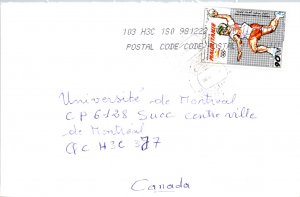 103 H3C 1S0 981222
POSTAL CODE/CODE POSTAL
Université de Montréal
C P 6128 Succ centre ville
de Montréal
QC H3C 3J7
Canada